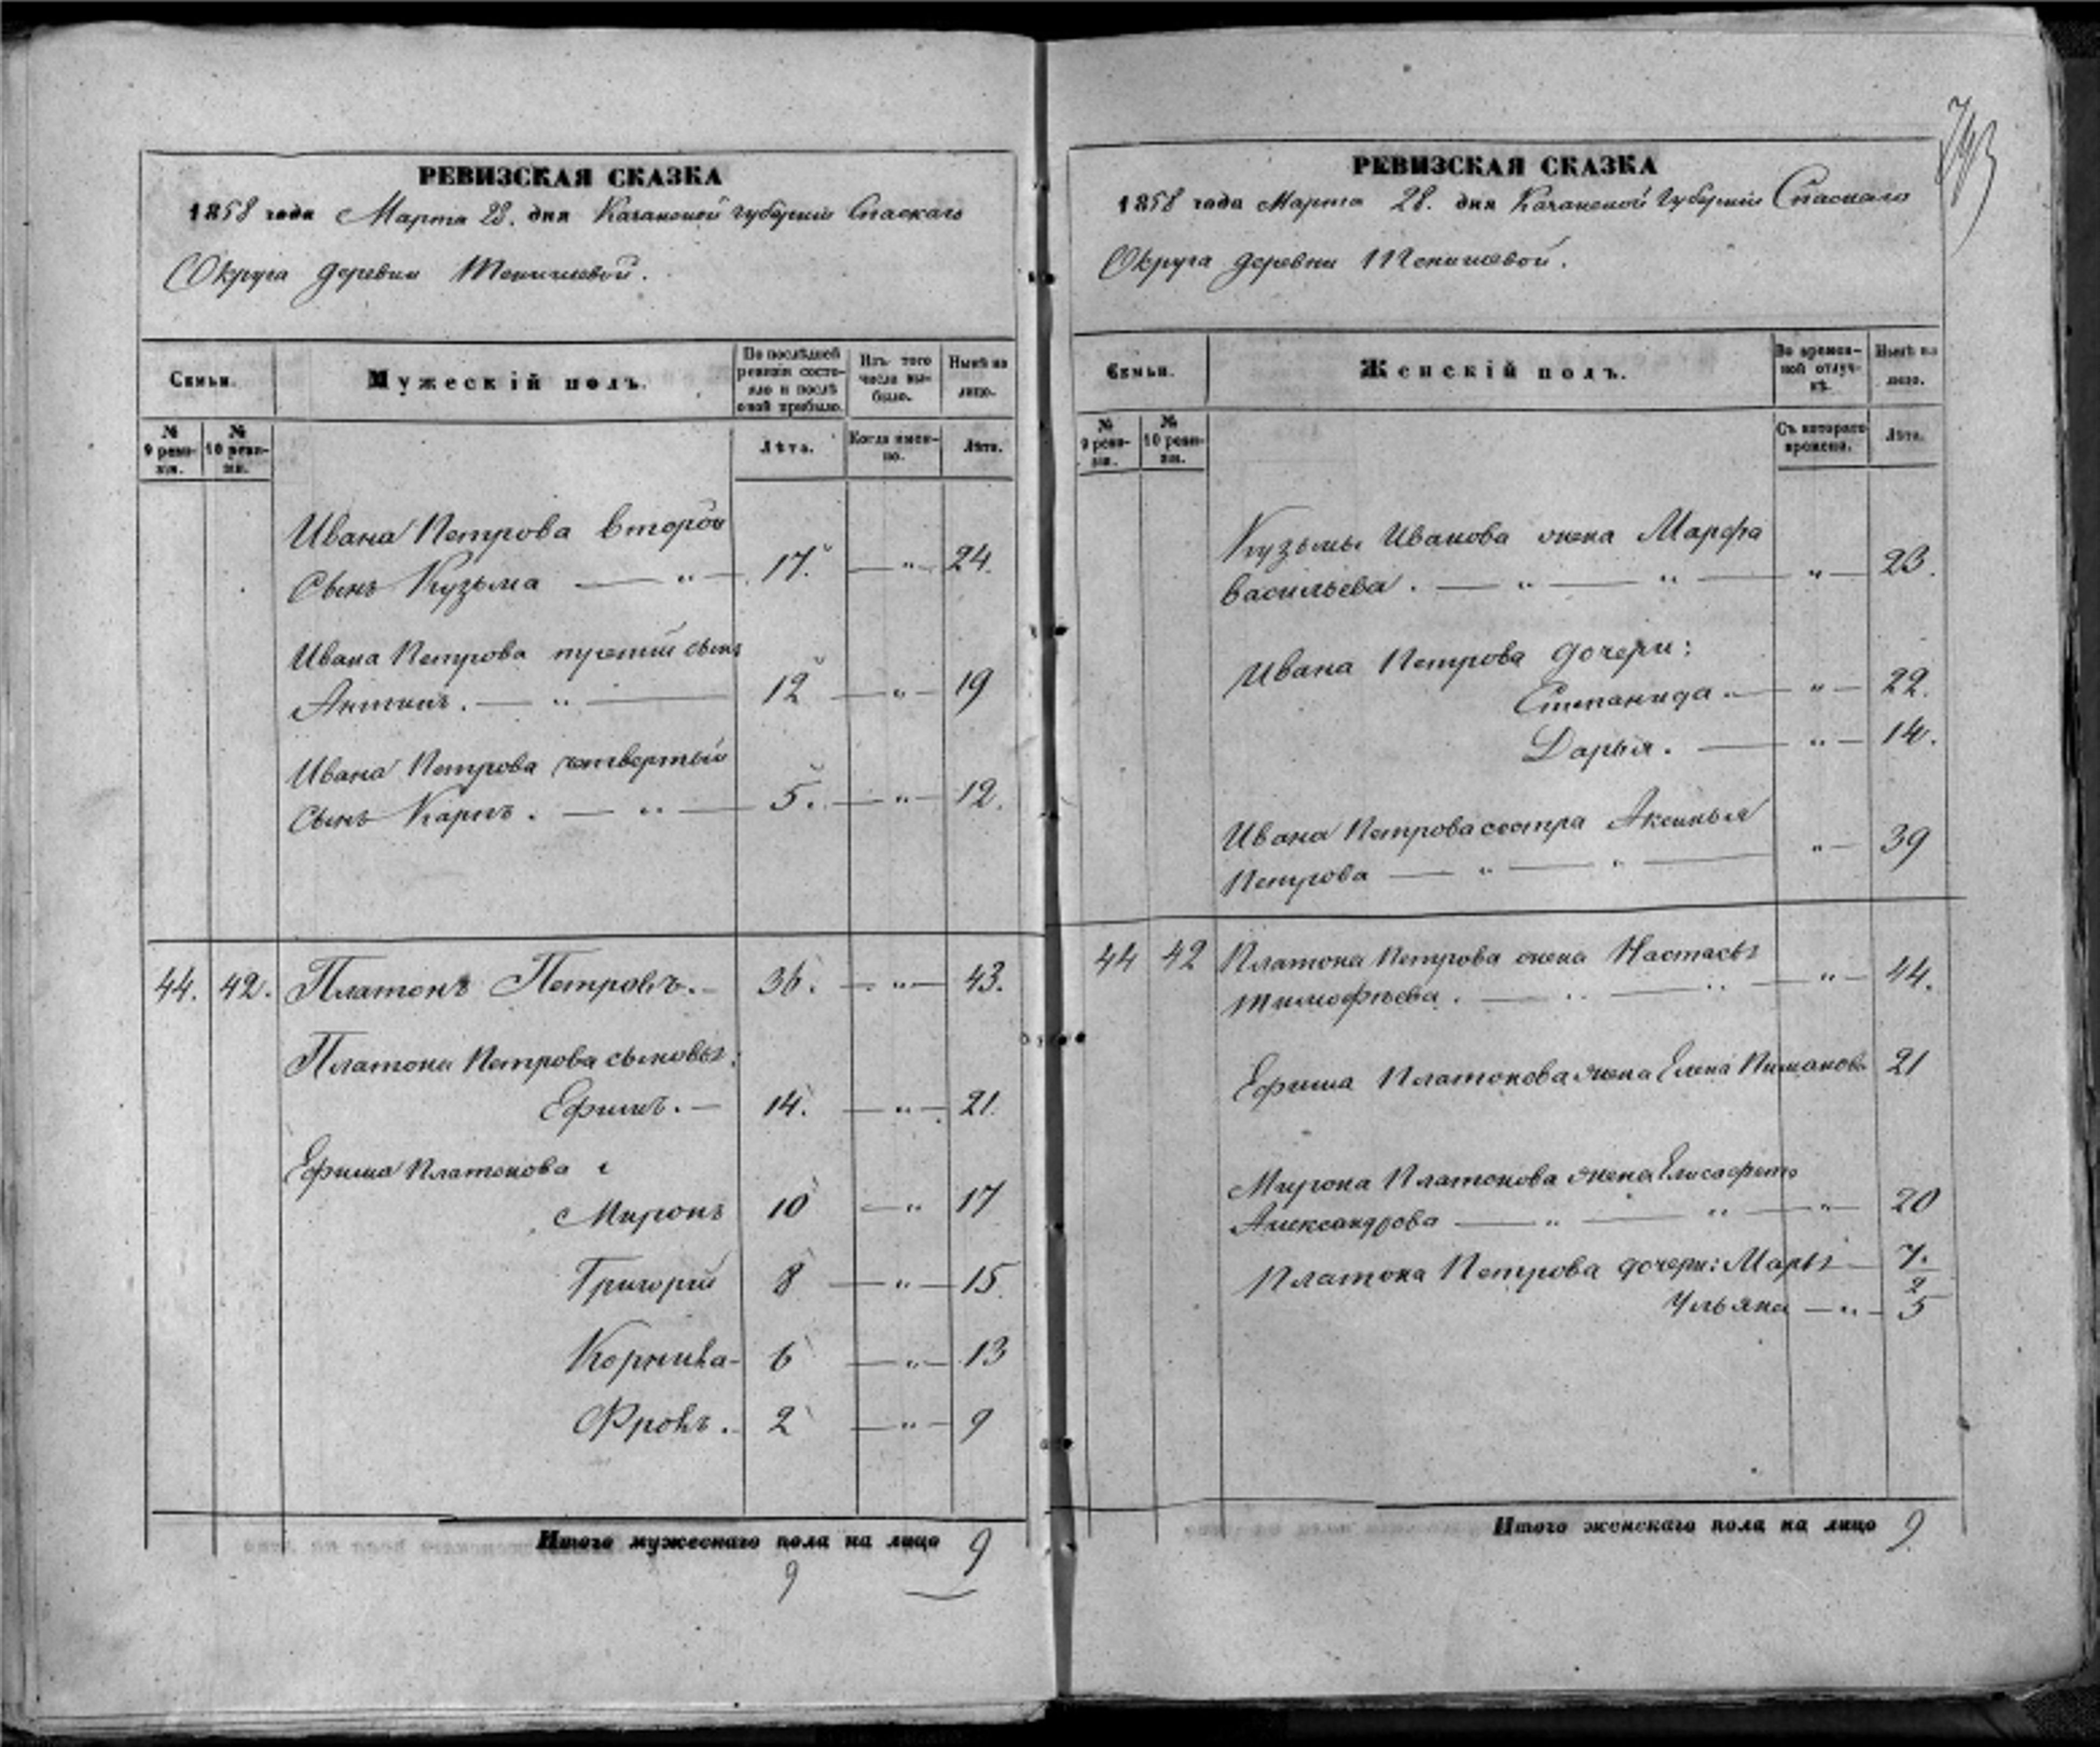 793
РЕВИЗСКАЯ СКАЗКА
1858 года Марта 28. дня Казанской губернии Спаскаго
Округа деревни Тенишевой.
Семьи.
Мужескій полъ.
По послѣдней ревизіи состояло и послѣ оной прибыло.
Изъ того числа выбыло.
Нынѣ на лицо.
№ 9 ревизіи.
№ 10 ревизіи.
Лѣта.
Когда именно.
Лѣта.
Ивана Петрова второй
Сынъ Кузьма — " — 17. — " — 24.
Ивана Петрова третій сынъ
Антипъ. — " — 12 — " — 19
Ивана Петрова четвертый
Сынъ Карпъ. — " — 5. — " — 12.
44. 42. Платонъ Петровъ. — 36. — " — 43.
Платона Петрова сыновья:
Ефимъ. — 14. — " — 21.
Ефима Платонова
Миронъ 10 — " — 17
Григорій 8 — " — 15.
Корнила — 6 — " — 13
Фролъ. 2 — " — 9
Итого мужескаго пола на лицо 9
9
РЕВИЗСКАЯ СКАЗКА
1858 года Марта 28. дня Казанской губернии Спаскаго
Округа деревни Тенишевой.
Семьи.
Женскій полъ.
Во временной отлучкѣ.
Нынѣ на лицо.
№ 9 ревизіи.
№ 10 ревизіи.
Съ котораго времени.
Лѣта.
Кузьмы Иванова жена Марфа
Васильева. — " — " — " — 23.
Ивана Петрова дочери:
Степанида. — " — 22.
Дарья. — " — 14.
Ивана Петрова сестра Аксинья
Петрова — " — " — " — 39
44 42 Платона Петрова жена Настасья
Тимофѣева. — " — " — " — 44.
Ефима Платонова жена Елена 21
Мирона Платонова жена Елисафета
Александрова — " — " — " — 20
Платона Петрова дочери: Марья — 7.
2
Ульяна — " — 5
Итого женскаго пола на лицо 9.